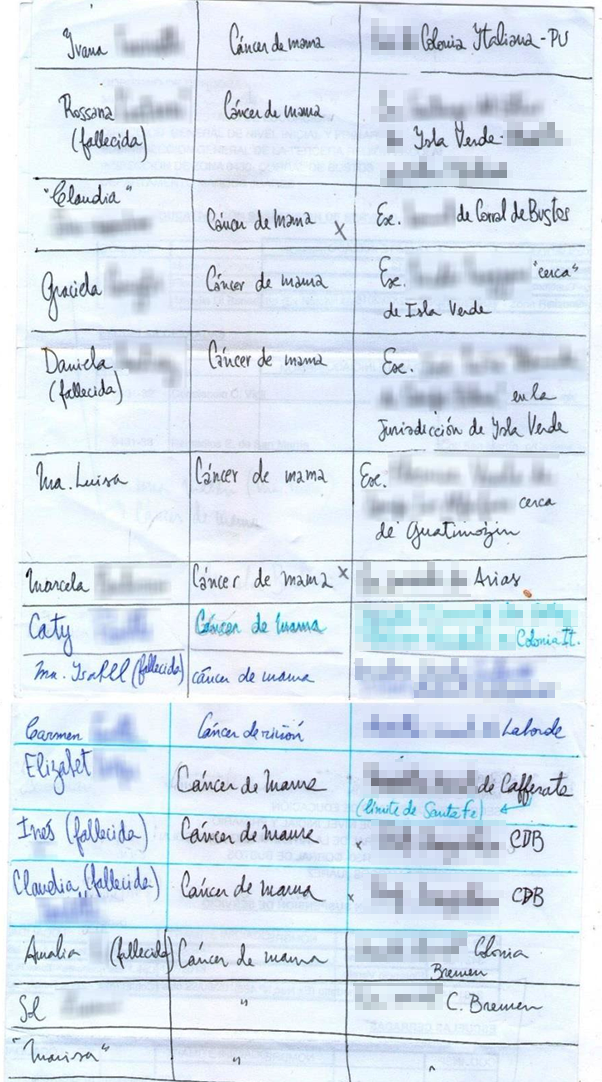 Ivana
Cáncer de mama
Colonia Italiana - PU
Rossana
(fallecida)
Cáncer de mama
Isla Verde -
"Claudia"
Cáncer de mama x
Esc. de Corral de Bustos
Graciela
Cáncer de mama
Esc. "cerca"
de Isla Verde
Daniela
(fallecida)
Cáncer de mama
Esc.
en la
Jurisdicción de Isla Verde
Ma. Luisa
Cáncer de mama
Esc.
cerca
de Guatimozin
Marcela
Cáncer de mama x
Arias
Caty
Cáncer de mama
Colonia It.
Ma. Isabel (fallecida)
cáncer de mama
Carmen
Cáncer de riñón
Laborde
Elizabet
Cáncer de Mama
de Cafferata
(límite de Santa Fe)
Inés (fallecida)
Cáncer de Mama
x CDB
Claudia (fallecida)
Cáncer de Mama
x CDB
Amalia (fallecida)
Cáncer de mama
Colonia
Bremen
Sol
"
C. Bremen
"Marisa"
"